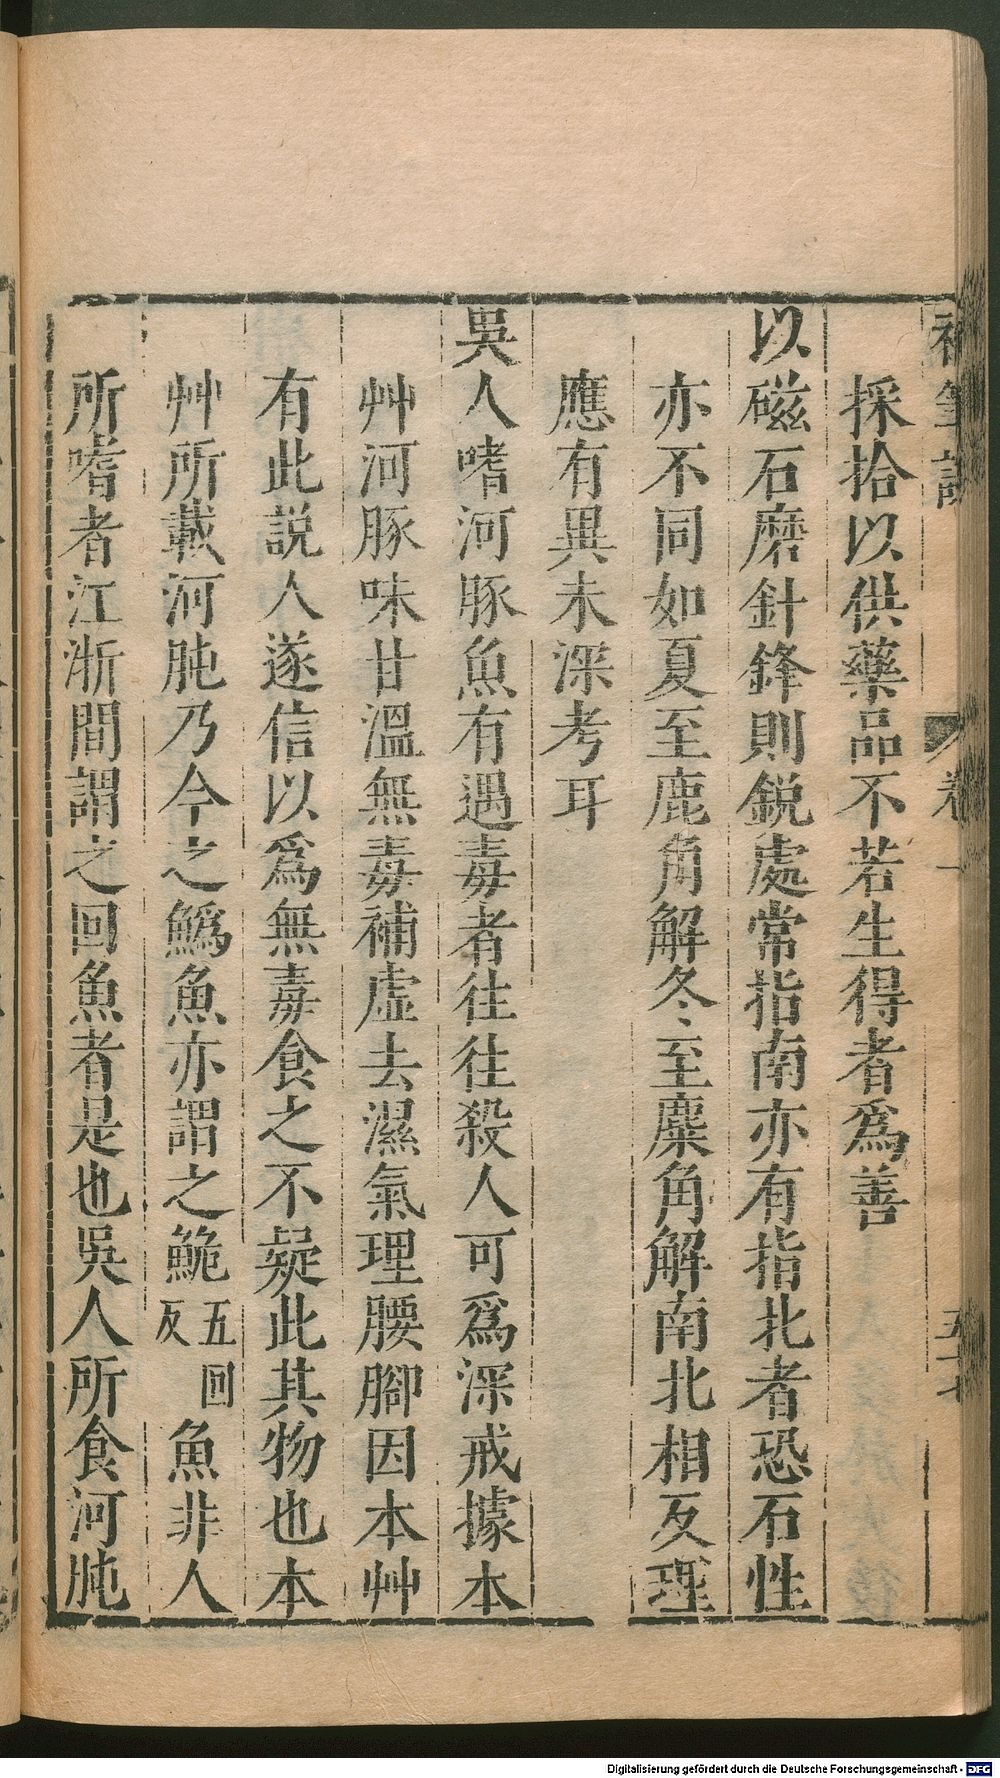 採拾以供藥品不若生得者爲善
以磁石磨針鋒則鋭處常指南亦有指北者恐石性
亦不同如夏至鹿角解冬至麋角解南北相反理
應有異未深考耳
吳人嗜河豚魚有遇毒者往往殺人可爲深戒據本
艸河豚味甘溫無毒補虛去濕氣理腰腳因本艸
有此説人遂信以爲無毒食之不疑此甚物也本
艸所載河肫乃今之鰞魚亦謂之鮠五回反魚非人
所嗜者江浙間謂之回魚者是也吳人所食河肫
Digitalisierung gefördert durch die Deutsche Forschungsgemeinschaft - DFG